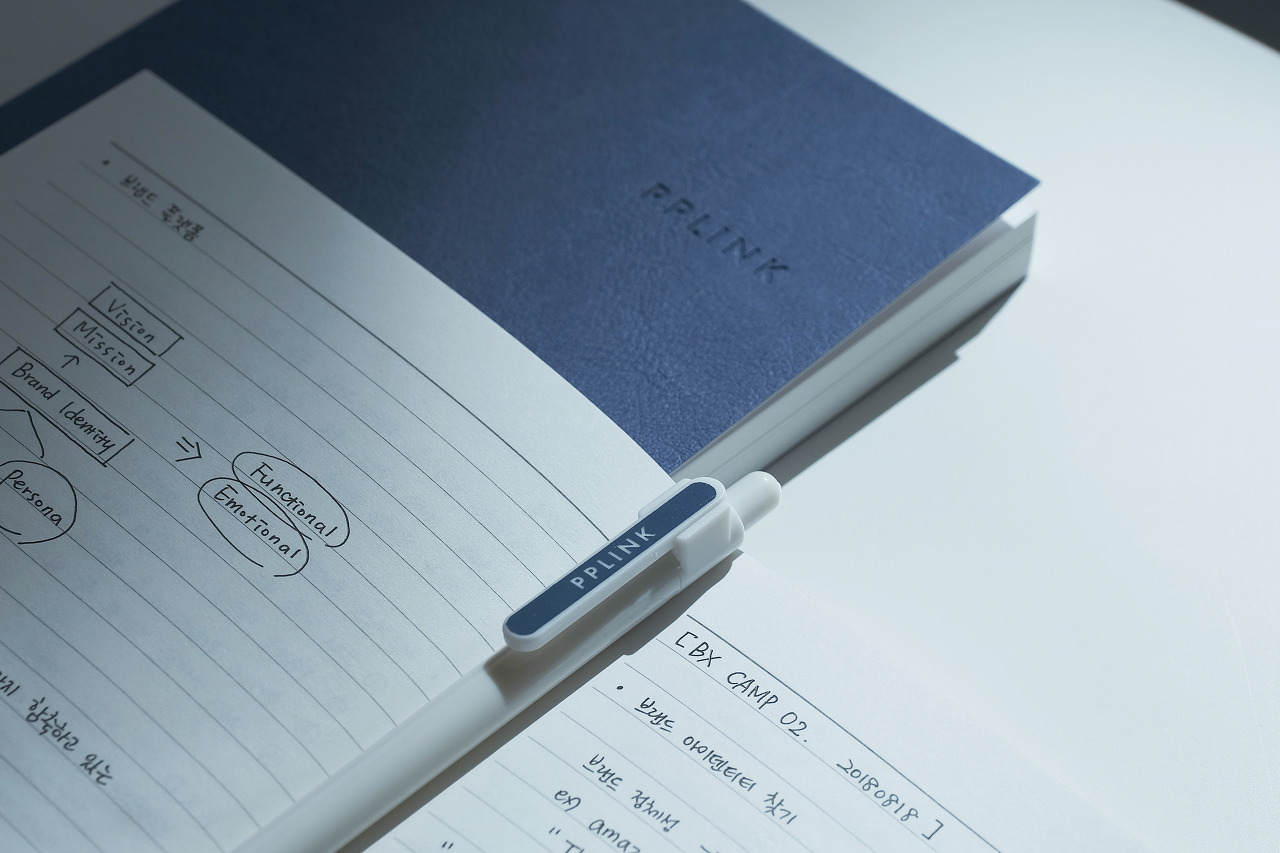 PPLINK
• 브랜드 플랫폼
Vision
Mission
↑
Brand Identity
⇒
Functional
Emotional
Persona
함축하고 있는
PPLINK
[BX CAMP 02. 20180818]
• 브랜드 아이덴티티 찾기
브랜드 정체성
ex)